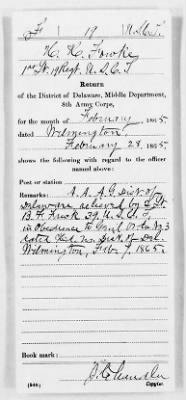 F | 19 | U.S.C.T.
H. K. Fowke
1st Lt., 19 Regt. U.S.C.T.
Return
of the District of Delaware, Middle Department,
8th Army Corps,
for the month of February, 1865.
dated Wilmington,
February 28, 1865
shows the following with regard to the officer
named above:
Post or station
Remarks: A. A. A. G. Dist. of
Delaware, relieved by Lt.
B. F. 39 U.S.C.T.
in Obedience to Genl. Order No 3
dated Hd. Qrs. Dist. of Del.
Wilmington, Feb. 7, 1865.
Book mark:
Chandler
Copyist.